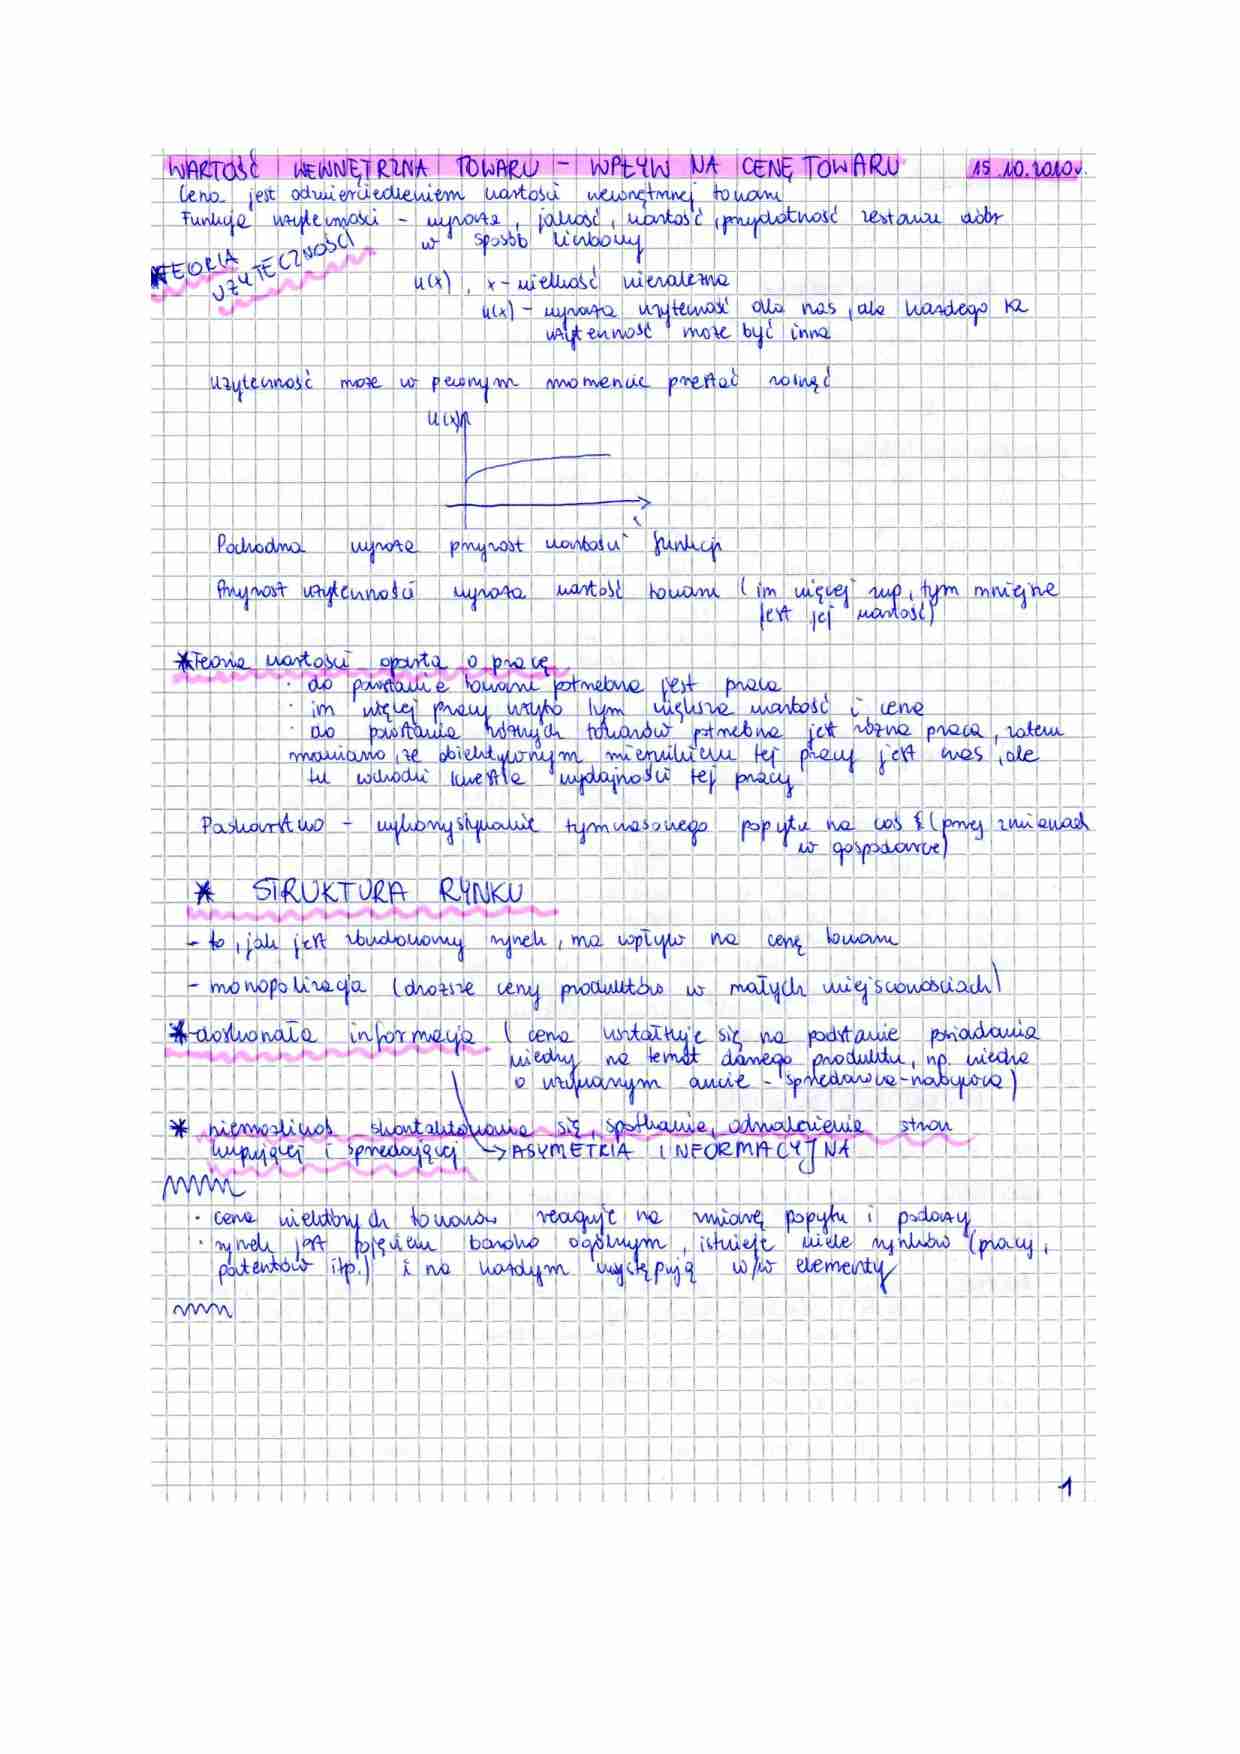 WARTOŚĆ WEWNĘTRZNA TOWARU - WPŁYW NA CENĘ TOWARU 15.10.2010r.
Cena jest odzwierciedleniem wartości wewnętrznej towaru
Funkcja użyteczności - wyraża, jakość, wartość, przydatność zestawu dóbr
w sposób liczbowy
TEORIA
UŻYTECZNOŚCI
u(x), x - wielkość niezależna
u(x) - wyraża użyteczność dla nas, dla każdego ta
użyteczność może być inna
użyteczność może w pewnym momencie przestać rosnąć
u(x)
Pochodna wyraża przyrost wartości funkcji
Przyrost użyteczności wyraża wartość towaru (im więcej zup, tym mniejsza
jest jej wartość)
* Teoria wartości oparta o pracę
· do powstania towaru potrzebna jest praca
· im więcej pracy użyto tym większa wartość i cena
· do powstania różnych towarów potrzebna jest różna praca, zatem
mawiano, że obiektywnym miernikiem tej pracy jest czas, ale
tu wchodzi kwestia wydajności tej pracy
Paskarstwo - wykorzystywanie tymczasowego popytu na coś (przy zmianach
w gospodarce)
* STRUKTURA RYNKU
- to, jak jest zbudowany rynek, ma wpływ na cenę towaru
- monopolizacja (droższe ceny produktów w małych miejscowościach)
* doskonała informacja (cena ustaltuje się na podstawie posiadania
wiedzy na temat danego produktu, np. wiedza
o używanym aucie - sprzedawca-nabywca)
* niemożliwość skontaktowania się, spotkania, odnalezienia stron
kupującej i sprzedającej → ASYMETRIA INFORMACYJNA
· cena niektórych towarów reaguje na zmianę popytu i podaży
· rynek jest pojęciem bardzo ogólnym, istnieje wiele rynków (pracy,
patentów itp.) i na każdym występują w/w elementy
1